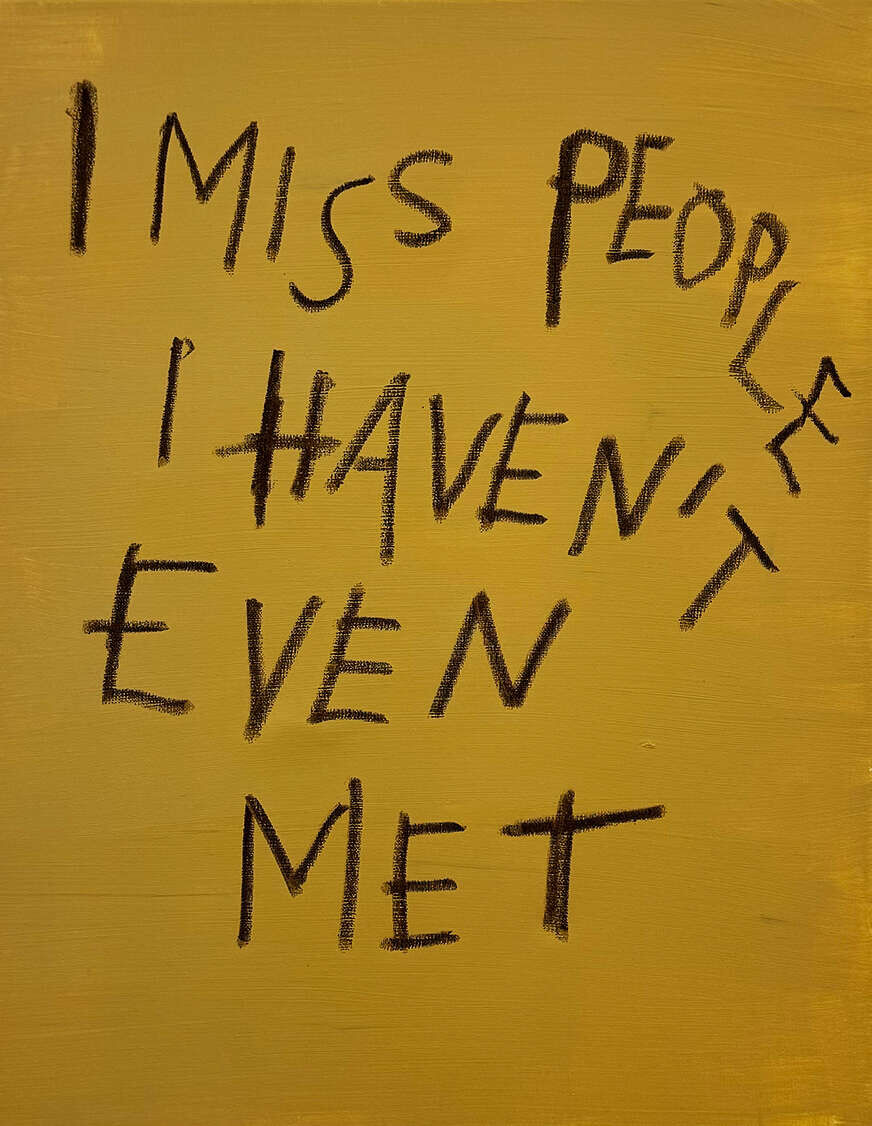 I MISS PEOPLE
I HAVEN'T
EVEN
MET